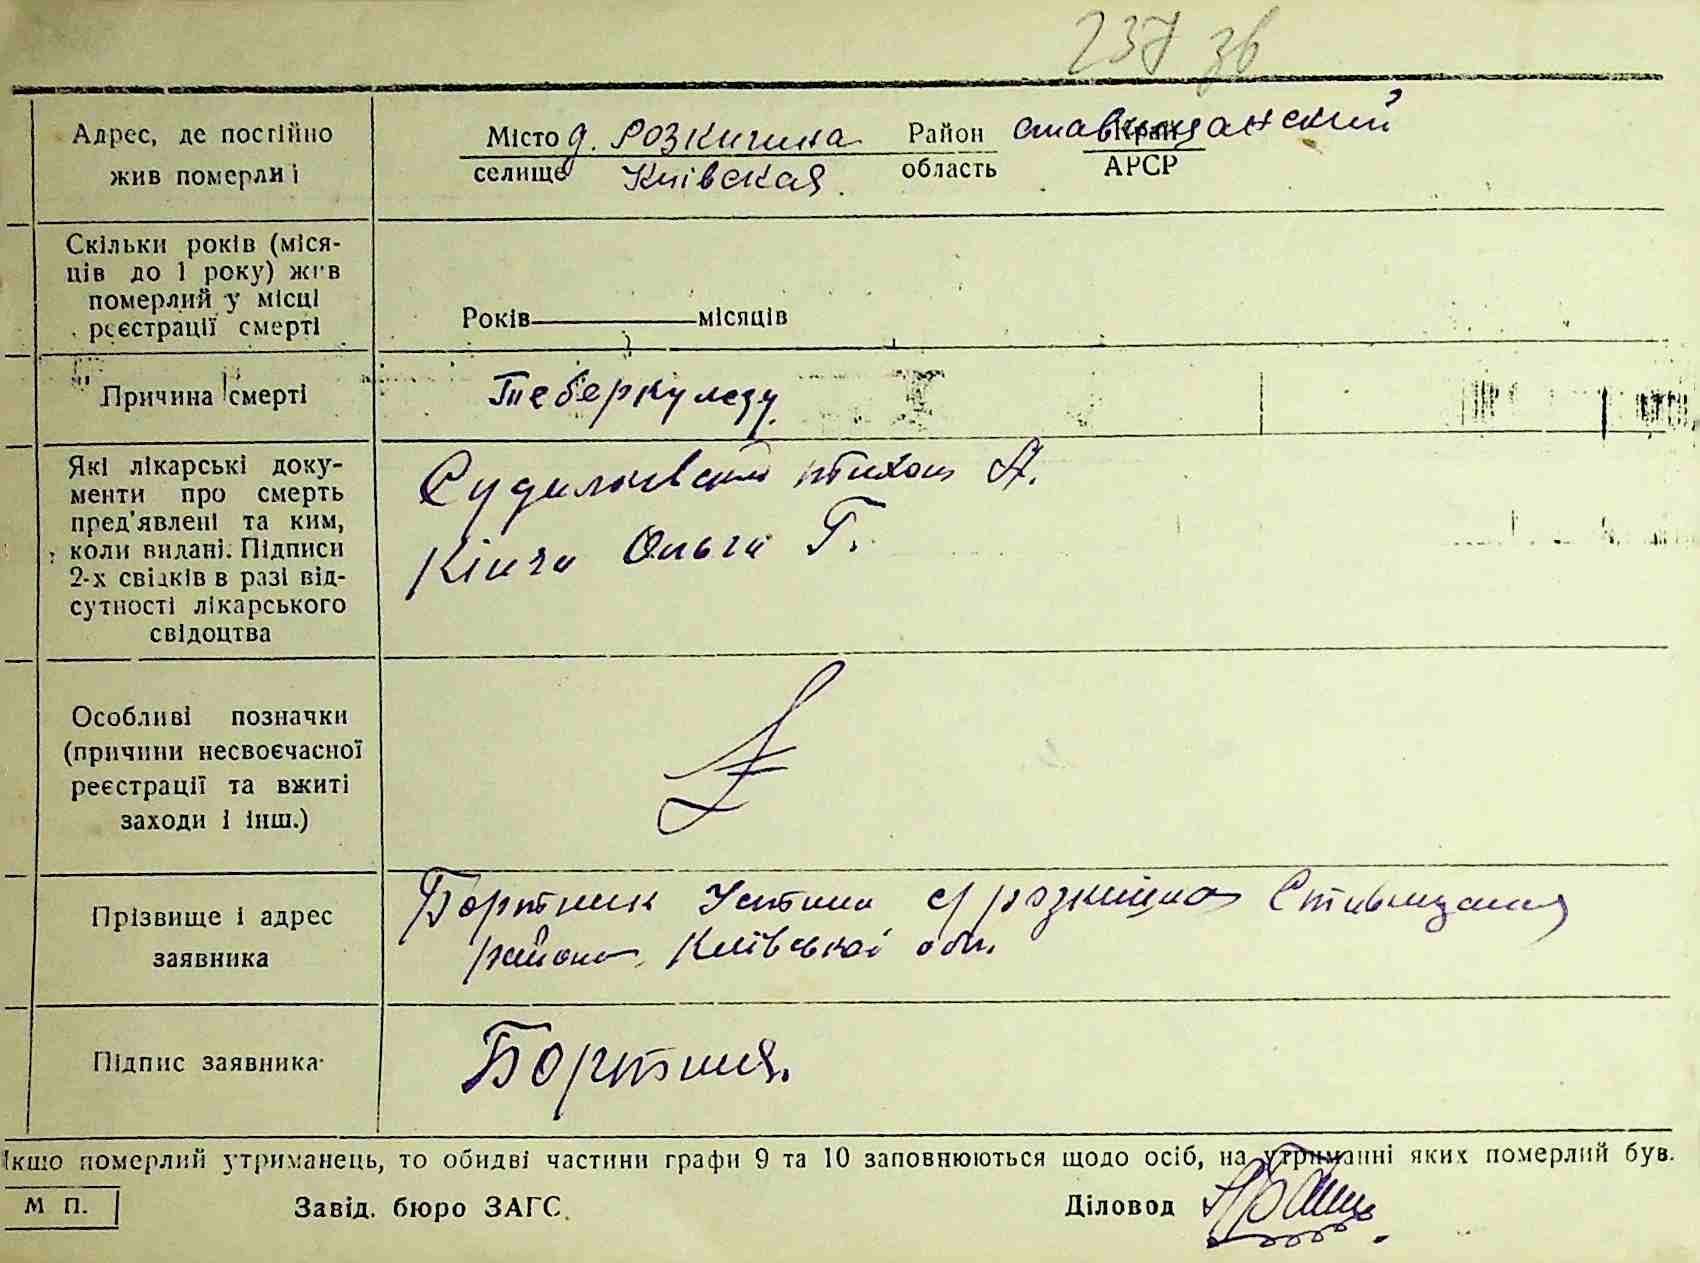 237 зв
Адрес, де постійно
жив померлиі
Місто д. Розкичина Район ставищанский Край
селище Київская область АРСР
Скільки років (міся-
ців до 1 року) жив
померлий у місці
реєстрації смерті
Років місяців
Причина смерті
Теберкулезу
Які лікарські доку-
менти про смерть
пред'явлені та ким,
коли видані. Підписи
2-х свідків в разі від-
сутності лікарського
свідоцтва
Тихон А.
Ольга Г.
Особливі позначки
(причини несвоєчасної
реєстрації та вжиті
заходи і інш.)
Прізвище і адрес
заявника
Бортник Устина
района Київської обл.
Підпис заявника
Бортник.
Якшо померлий утриманець, то обидві частини графи 9 та 10 заповнюються щодо осіб, на утриманні яких померлий був.
М П.
Завід. бюро ЗАГС.
Діловод